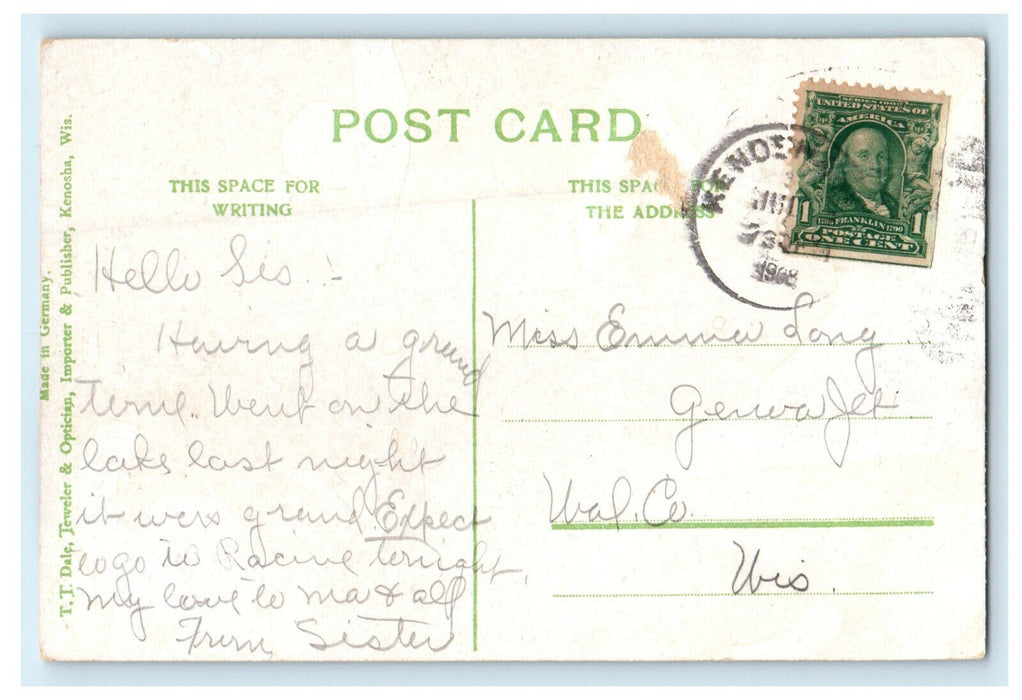 POST CARD
THIS SPACE FOR
WRITING
THIS SPACE FOR
THE ADDRESS
Made in Germany.
T. T. Dale, Jeweler & Optician, Importer & Publisher, Kenosha, Wis.
KENOSHA
1908
SERIES 1902
UNITED STATES OF
AMERICA
1706 FRANKLIN 1790
1 1
POSTAGE
ONE CENT
Hello Sis :-
Having a grand
time. Went on the
lake last night
it were grand Expect
to go to Racine tonight.
My love to Ma & all
From Sister
Miss Emma Long.
Genva Jct.
Wal. Co.
Wis.